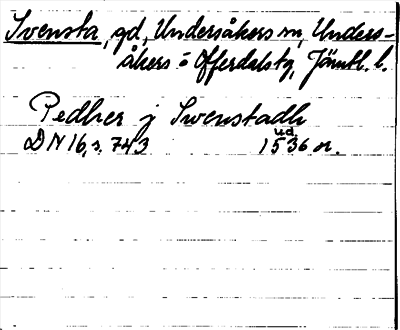 Svensta, gd, Undersåkers sn, Unders-
åkers o Offerdalstg, Jämtl. l.
Pedher j Swenstadh
ud.
DN 16, s. 743 1536 or.